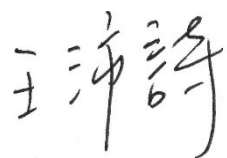 王沛詩